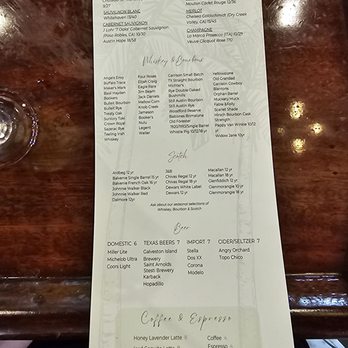 9/27
SAUVIGNON BLANC
Whitehaven 13/40
CABERNET SAUVIGNON
J Lohr "7 Oaks" Cabernet Sauvignon
(Paso Robles, CA) 10/35
Austin Hope 18/58
MERLOT
Chelsea Goldschmidt (Dry Creek
Valley, CA) 13/45
CHAMPAGNE
La Marca Prosecco (ITA) 8/29
Veuve Clicquot Rose 110
Whiskey & Bourbon
Angels Envy
Buffalo Trace
Maker's Mark
Basil Hayden
Bookers
Bulleit, Bourbon
Bulleit Rye
Treaty Oak
Suntory Toki
Crown Royal
Sazerac Rye
Teeling Irish
Whiskey
Four Roses
Elijah Craig
Eagle Rare
Jim Beam
Jack Daniels
Mellow Corn
Knob Creek
Jameson
Booker's
Nulu
Legent
Weller
Garrison Small Batch
TX Straight Bourbon
Mother's
Rye Double Oaked
Bushmills
Still Austin Bourbon
Still Austin Rye
Balcones Brimstone
Old Forester
Whistle Pig 10/12
Yellowstone
Old Grandad
Garrison
Cowboy Blantons
Orphan Barrel
Muckety Muck
Fable & Folly
Scarlet Shade
Horse Soldier
Pappy Van Winkle 10/12
yr
Widow Jane 10yr
Scotch
Ardbeg 12 yr
Balvenie Single Barrel 15 yr
Balvenie French Oak 16 yr
Johnnie Walker Black
Johnnie Walker Red
Dalmore 12yr
J&B
Chivas Regal 12 yr
Chivas Regal 18 yr
Dewars White Label
Dewars 12yr
Macallan 12 yr
Macallan 18 yr
Glenfiddich 12 yr
Glenmorangie 10yr
Glenmorangie 18yr
Ask about our seasonal selections of
Whiskey, Bourbon & Scotch
Beer
DOMESTIC 6
Miller Lite
Michelob Ultra
Coors Light
TEXAS BEERS 7
Galveston Island
Brewery
Saint Arnolds
Stesti Brewery
Karback
Hopadillo
IMPORT 7
Stella
Dos XX
Corona
Modelo
CIDER/SELTZER 7
Angry Orchard
Topo Chico
Coffee & Espresso
Honey Lavender Latte
Coffee
Espresso